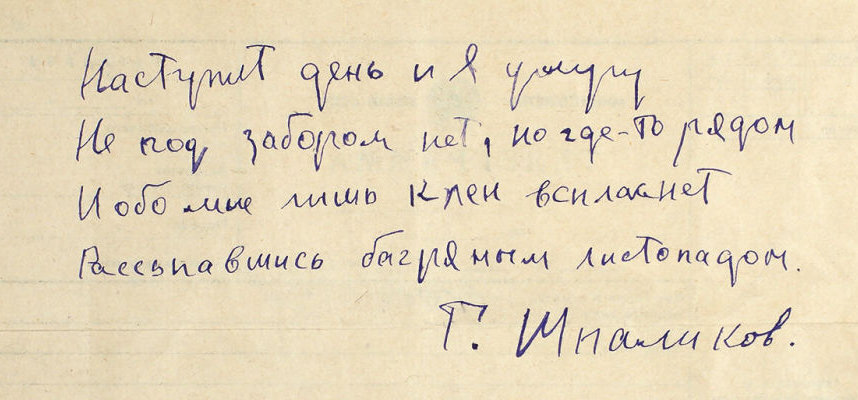 Наступит день и я умру
Не под забором нет, но где-то рядом
И обо мне лишь клен всплакнет
Рассыпавшись багряным листопадом.
Г. Шпаликов.